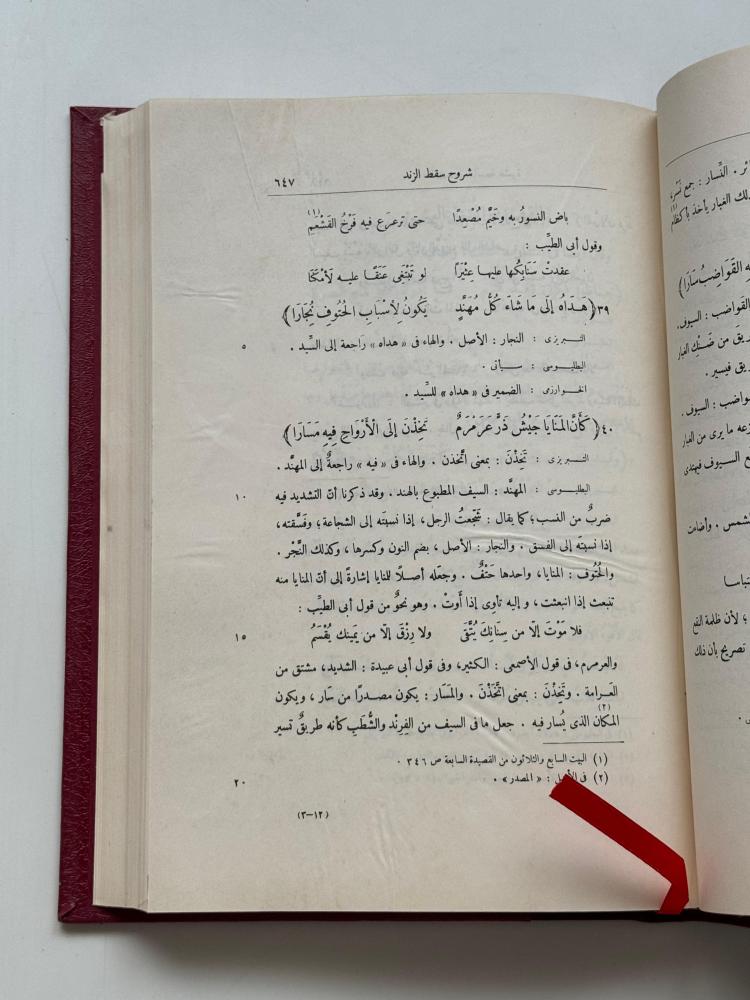 شروح سقط الزند ٦٤٧
باض النسورُ به وخَيَّم مُصْعِدًا حتى ترعرَع فيه فَرْخُ القَشْعَمِ (١)
وقول أبى الطيّب :
عقدتْ سَنَابِكُها عليها عِثْيَرًا لو تَبْتَغِى عَنَقًا عليه لَأمْكَنَا
٣٩ ﴿ هَدَاهُ إلَى مَا شَاءَ كُلُّ مُهَنَّدٍ يَكُونُ لِأَسْبَابِ الحُتُوفِ نُجَارَا ﴾
التــبريزى : النجار : الأصل . والهاء فى « هداه » راجعة إلى السَّيد . ٥
البطليوسى : سيأتى .
الخــوارزمى : الضمير فى « هداه » للسَّيد .
٤٠ ﴿ كَأَنَّ المَنَايَا جَيْشُ ذَرٍّ عَرَمْرَمٌ تَخِذْنَ إلَى الْأَرْوَاحِ فِيهِ مَسَارَا ﴾
التــبريزى : تَخِذْنَ : بمعنى اتّخذن . والهاء فى « فيه » راجعةٌ إلى المهنَّد .
البطليــوسى : المهنَّد : السيف المطبوع بالهند . وقد ذكرنا أنّ التشديد فيه ١٠
ضربٌ من النسب؛ كما يقال : شَجّعتُ الرجل، إذا نسبتَه إلى الشجاعة؛ وفَسَّقته،
إذا نسبتَه إلى الفسق . والنجار : الأصل، بضم النون وكسرها، وكذلك النَّجْر .
والحُتُوف : المنايا، واحدها حَتْفٌ . وجعله أصـلًا للمنايا إشارةً إلى أنّ المنايا منه
تنبعث إذا انبعثت، وإليه تأوِى إذا أَوتْ . وهو نحوٌ من قول أبى الطيِّب :
فلا مَوْتَ إلّا من سِنَانِكَ يُتَّقَى ولا رِزْقَ إلّا من يَمينِكَ يُقْسَمُ ١٥
والعرمرم، فى قول الأصمعىّ : الكثير، وفى قول أبى عبيدة : الشديد، مشتق من
العَـرامة . وتَخِذْنَ : بمعنى اتَّخَذْنَ . والمَسَار : يكون مصـدرًا من سَار، ويكون
المكان الذى يُسار فيه . (٢) جعل ما فى السيف من الفِرِنْد والشُّطَب كأنه طريقٌ تسير
(١) البيت السابع والثلاثون من القصيدة السابعة ص ٣٤٦ .
(٢) فى الأصل : « المصدر » . ٢٠
(٣-١٢)
النِّسار : جمع نَسْر،
لك الغبار يأخذ بأكظام
القَوَاضِبُ سَارَا ﴾
القواضب : السيوف.
يق فيسير .
واضب : السيوف .
زعه ما يرى من الغبار
ع السيوف فيهتدى
شمس . وأضامن
تباسا
؛ لأن ظلمة النقع
تصريح بأن ذلك